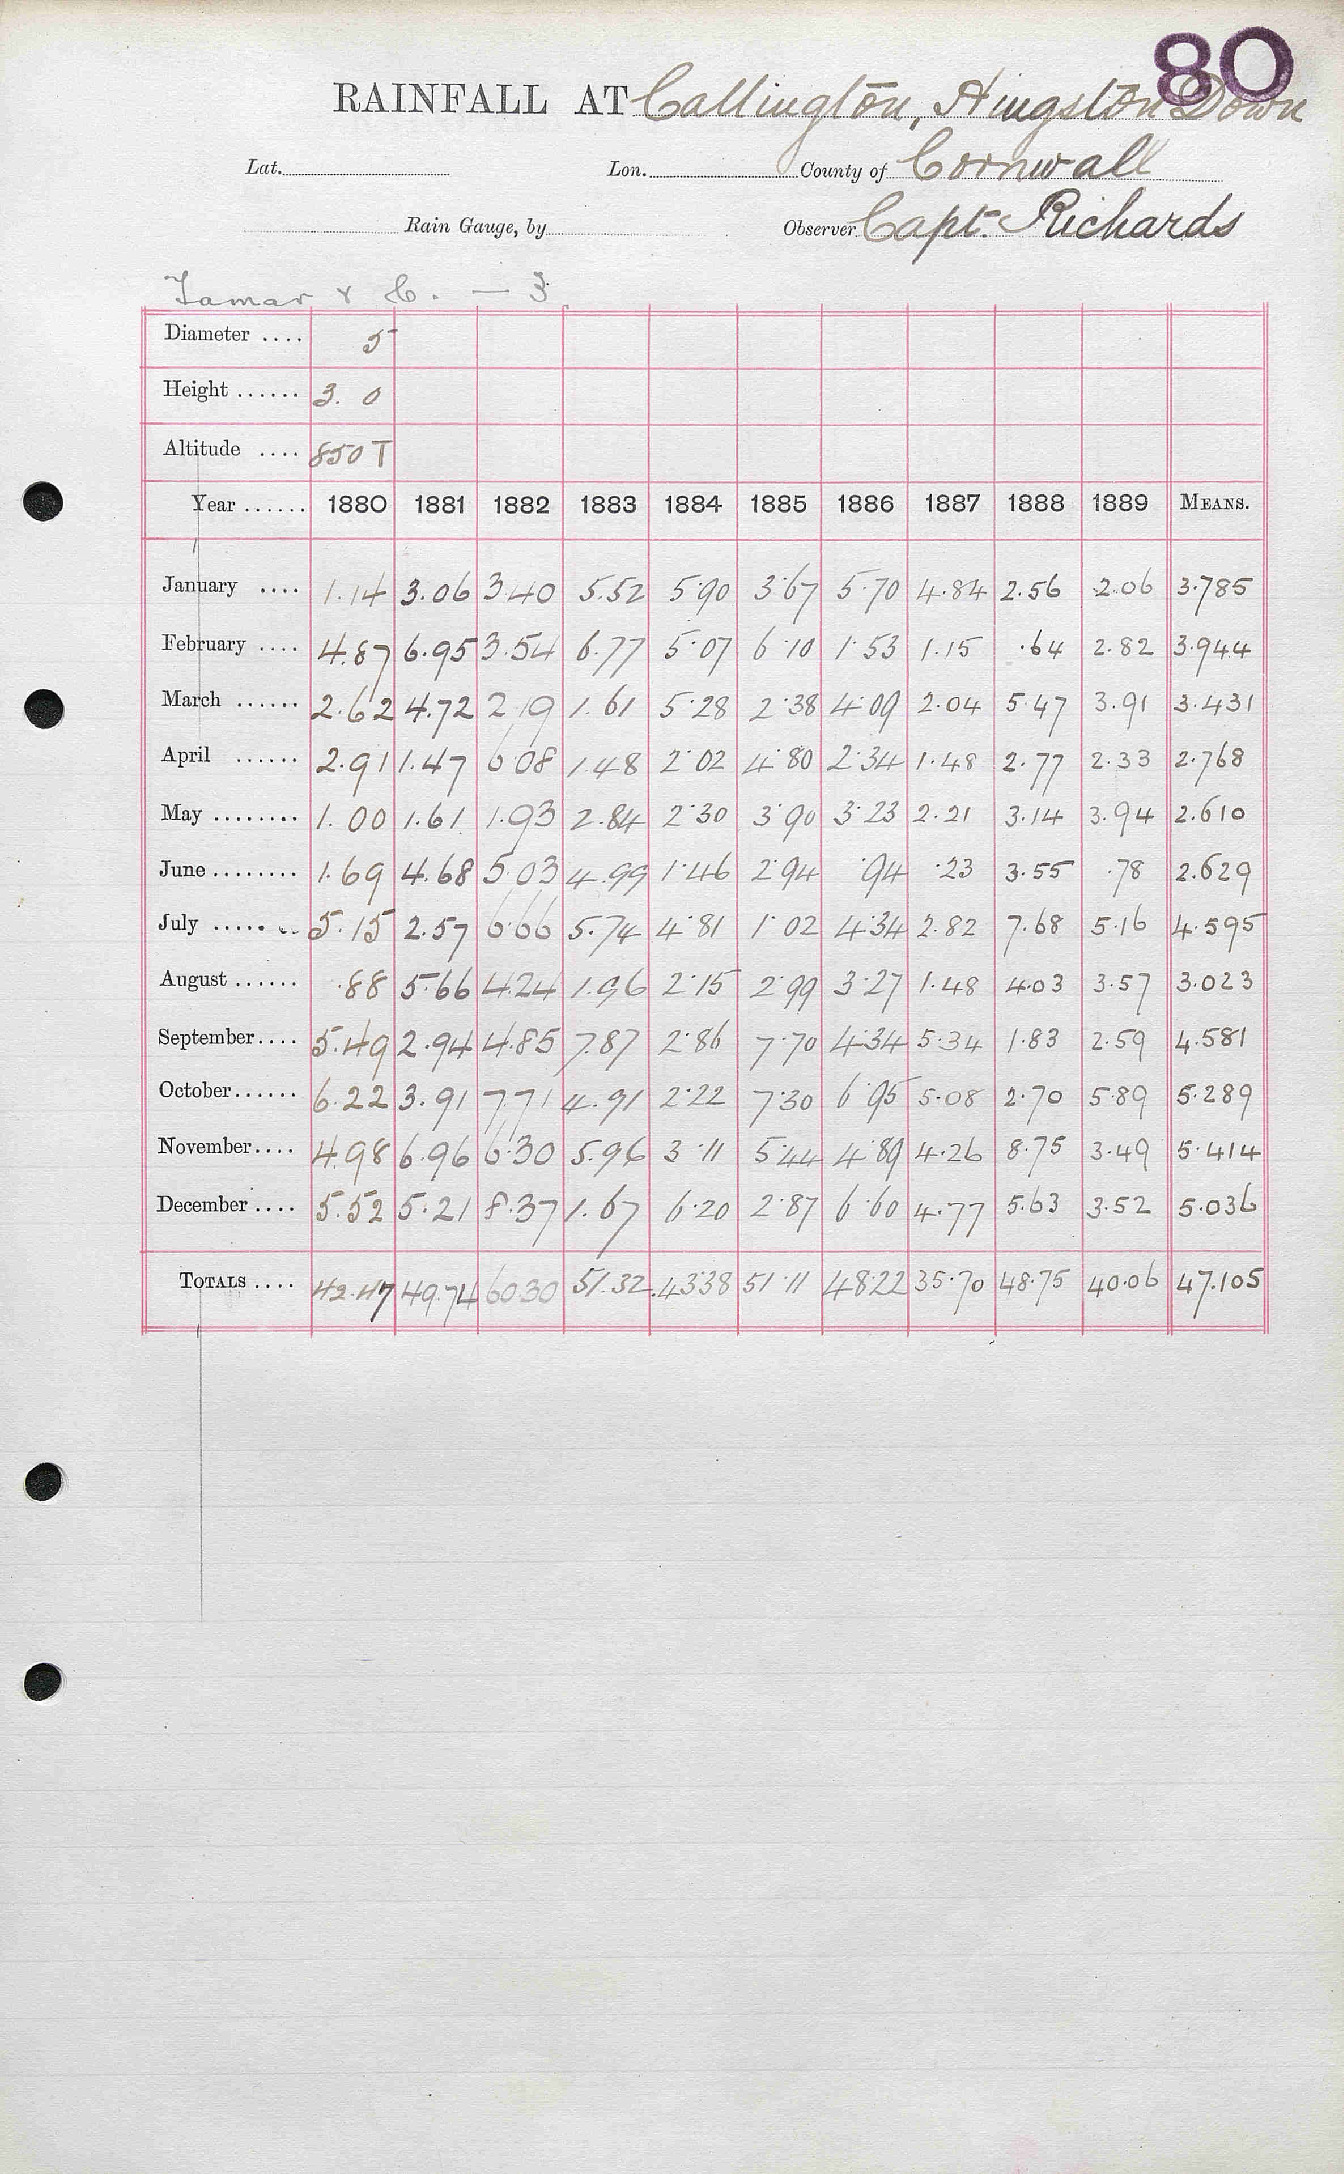 80
RAINFALL AT Callington, Hingston Down
Lat. Lon. County of Cornwall
Rain Gauge, by Observer Capt. Richards
Tamar & C. — 3
Diameter .... 5
Height ...... 3. 0
Altitude .... 850 T
Year ...... 1880 1881 1882 1883 1884 1885 1886 1887 1888 1889 MEANS.
January .... 1.14 3.06 3.40 5.52 5.90 3.67 5.70 4.84 2.56 2.06 3.785
February .... 4.87 6.95 3.54 6.77 5.07 6.10 1.53 1.15 .64 2.82 3.944
March ...... 2.62 4.72 2.19 1.61 5.28 2.38 4.09 2.04 5.47 3.91 3.431
April ...... 2.91 1.47 6.08 1.48 2.02 4.80 2.34 1.48 2.77 2.33 2.768
May ........ 1.00 1.61 1.93 2.84 2.30 3.90 3.23 2.21 3.14 3.94 2.610
June ........ 1.69 4.68 5.03 4.99 1.46 2.94 .94 .23 3.55 .78 2.629
July ........ 5.15 2.57 6.66 5.74 4.81 1.02 4.34 2.82 7.68 5.16 4.595
August ...... .88 5.66 4.24 1.96 2.15 2.99 3.27 1.48 4.03 3.57 3.023
September.... 5.49 2.94 4.85 7.87 2.86 7.70 4.34 5.34 1.83 2.59 4.581
October...... 6.22 3.91 7.71 4.91 2.22 7.30 6.95 5.08 2.70 5.89 5.289
November.... 4.98 6.96 6.30 5.96 3.11 5.44 4.89 4.26 8.75 3.49 5.414
December .... 5.52 5.21 8.37 1.67 6.20 2.87 6.60 4.77 5.63 3.52 5.036
TOTALS .... 42.47 49.74 60.30 51.32 43.38 51.11 48.22 35.70 48.75 40.06 47.105